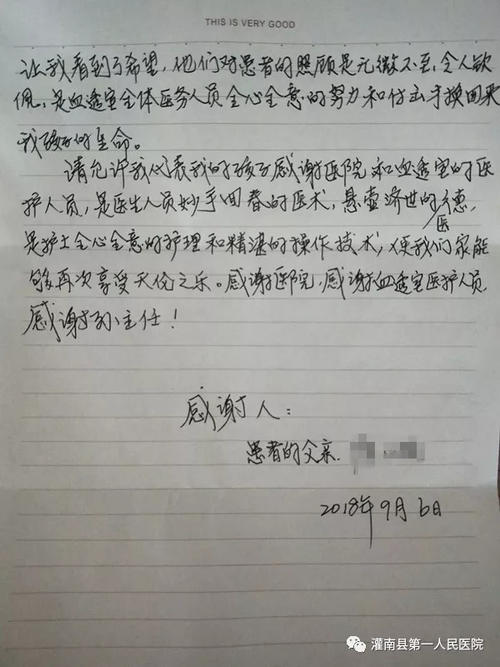 THIS IS VERY GOOD
让我看到了希望,他们对患者的照顾是无微不至,令人钦
佩,是血透室全体医务人员全心全意的努力和付出才换回来
我孩子的生命。
请允许我代表我的孩子感谢医院和血透室的医
护人员,是医生人员妙手回春的医术,悬壶济世的医德,
是护士全心全意的护理和精湛的操作技术,使我们家能
够再次享受天伦之乐。感谢医院,感谢血透室医护人员
感谢孙主任!
感谢人:
患者的父亲.
2018年9月6日
灌南县第一人民医院